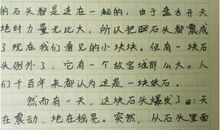 的石头都是连在一起的，由于盘古开天
地时力量无比大，所以把石头都震成
了现在我们看见的小块块，但有一块石
头例外了，它有一个故宫城那么大。人
们千百年来都认为这是一块然石。
然而有一天，这块石头爆发了：天
在震动，地在摇晃。突然，从石头里面